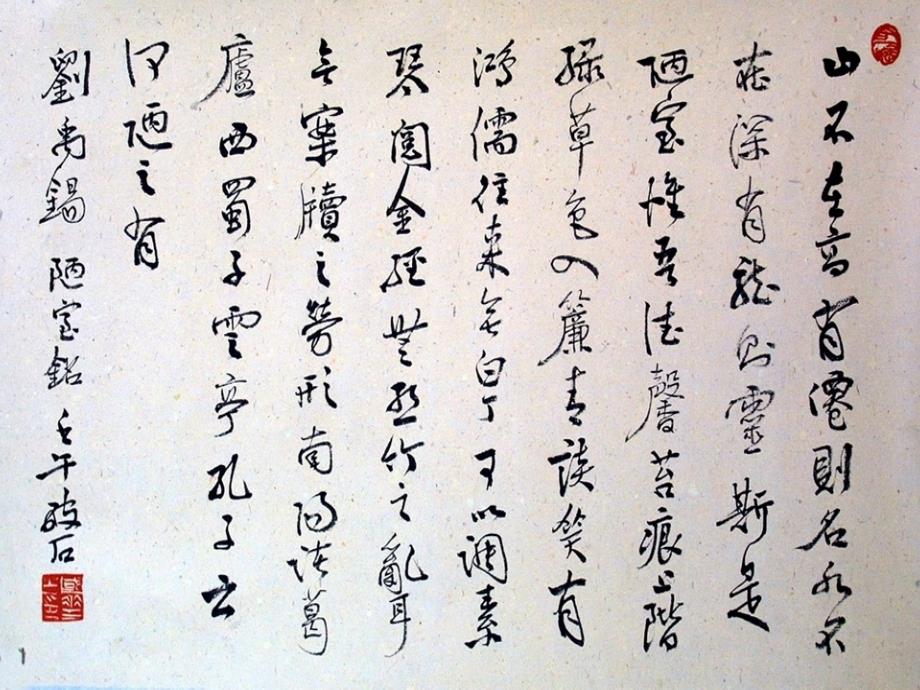 山不在高有僊則名水不
在深有龍則靈斯是
陋室惟吾德馨苔痕上階
綠草色入簾青談笑有
鴻儒往來無白丁可以調素
琴閱金經無絲竹之亂耳
無案牘之勞形南陽諸葛
廬西蜀子雲亭孔子云
何陋之有
劉禹錫 陋室銘 壬午破石